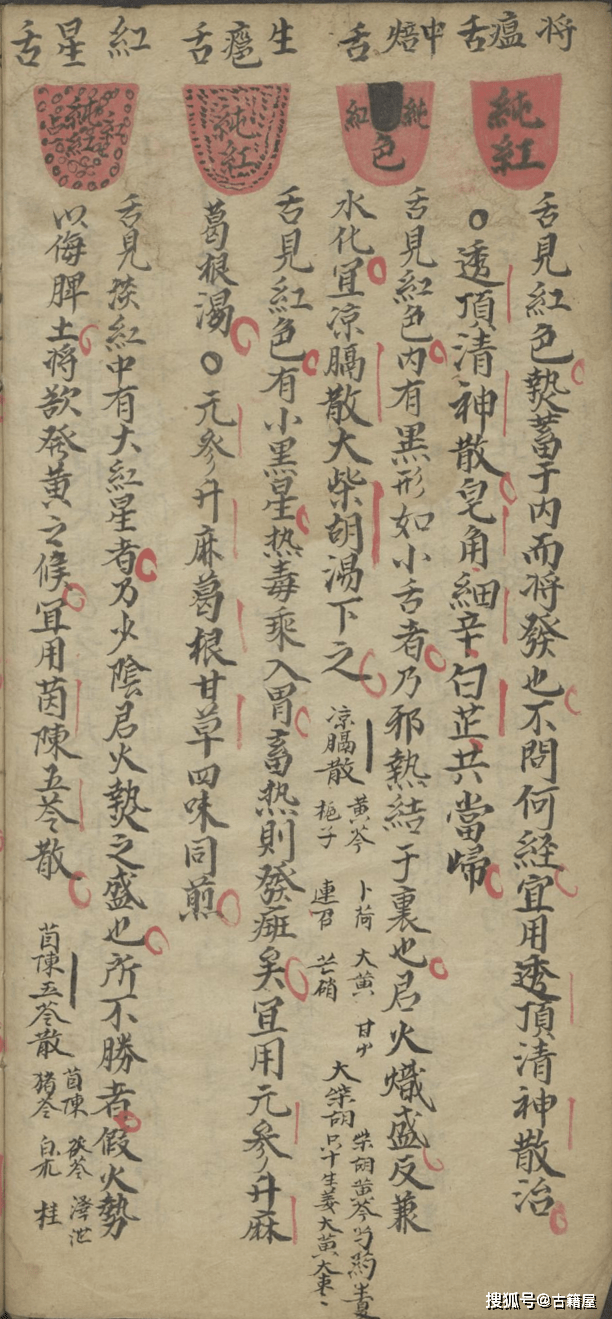 将瘟舌
純紅
舌見紅色熱蓄于内而将發也不問何経宜用透頂清神散治
○透頂清神散皂角細辛白芷共當歸
中焙舌
純紅色
舌見紅色内有黒形如小舌者乃邪熱結于裏也君火熾盛反兼
水化宜凉膈散大柴胡湯下之
凉膈散 黄芩 卜荷 大黄 甘艸
梔子 連召 芒硝
大柴胡 柴胡黄芩芍药生夏
只十生姜大黄大枣
生瘢舌
純紅
舌見紅色有小黒星热毒乘入胃畜热則發斑矣宜用元參升麻
葛根湯○元參升麻葛根甘草四味同煎
紅星舌
純紅
舌見淡紅中有大紅星者乃少陰君火熱之盛也所不勝者假火勢
以侮脾土将欲發黄之候宜用茵陳五苓散
茵陳五苓散 茵陳 茯苓 澤泄
猪苓 白朮 桂
搜狐号@古籍屋